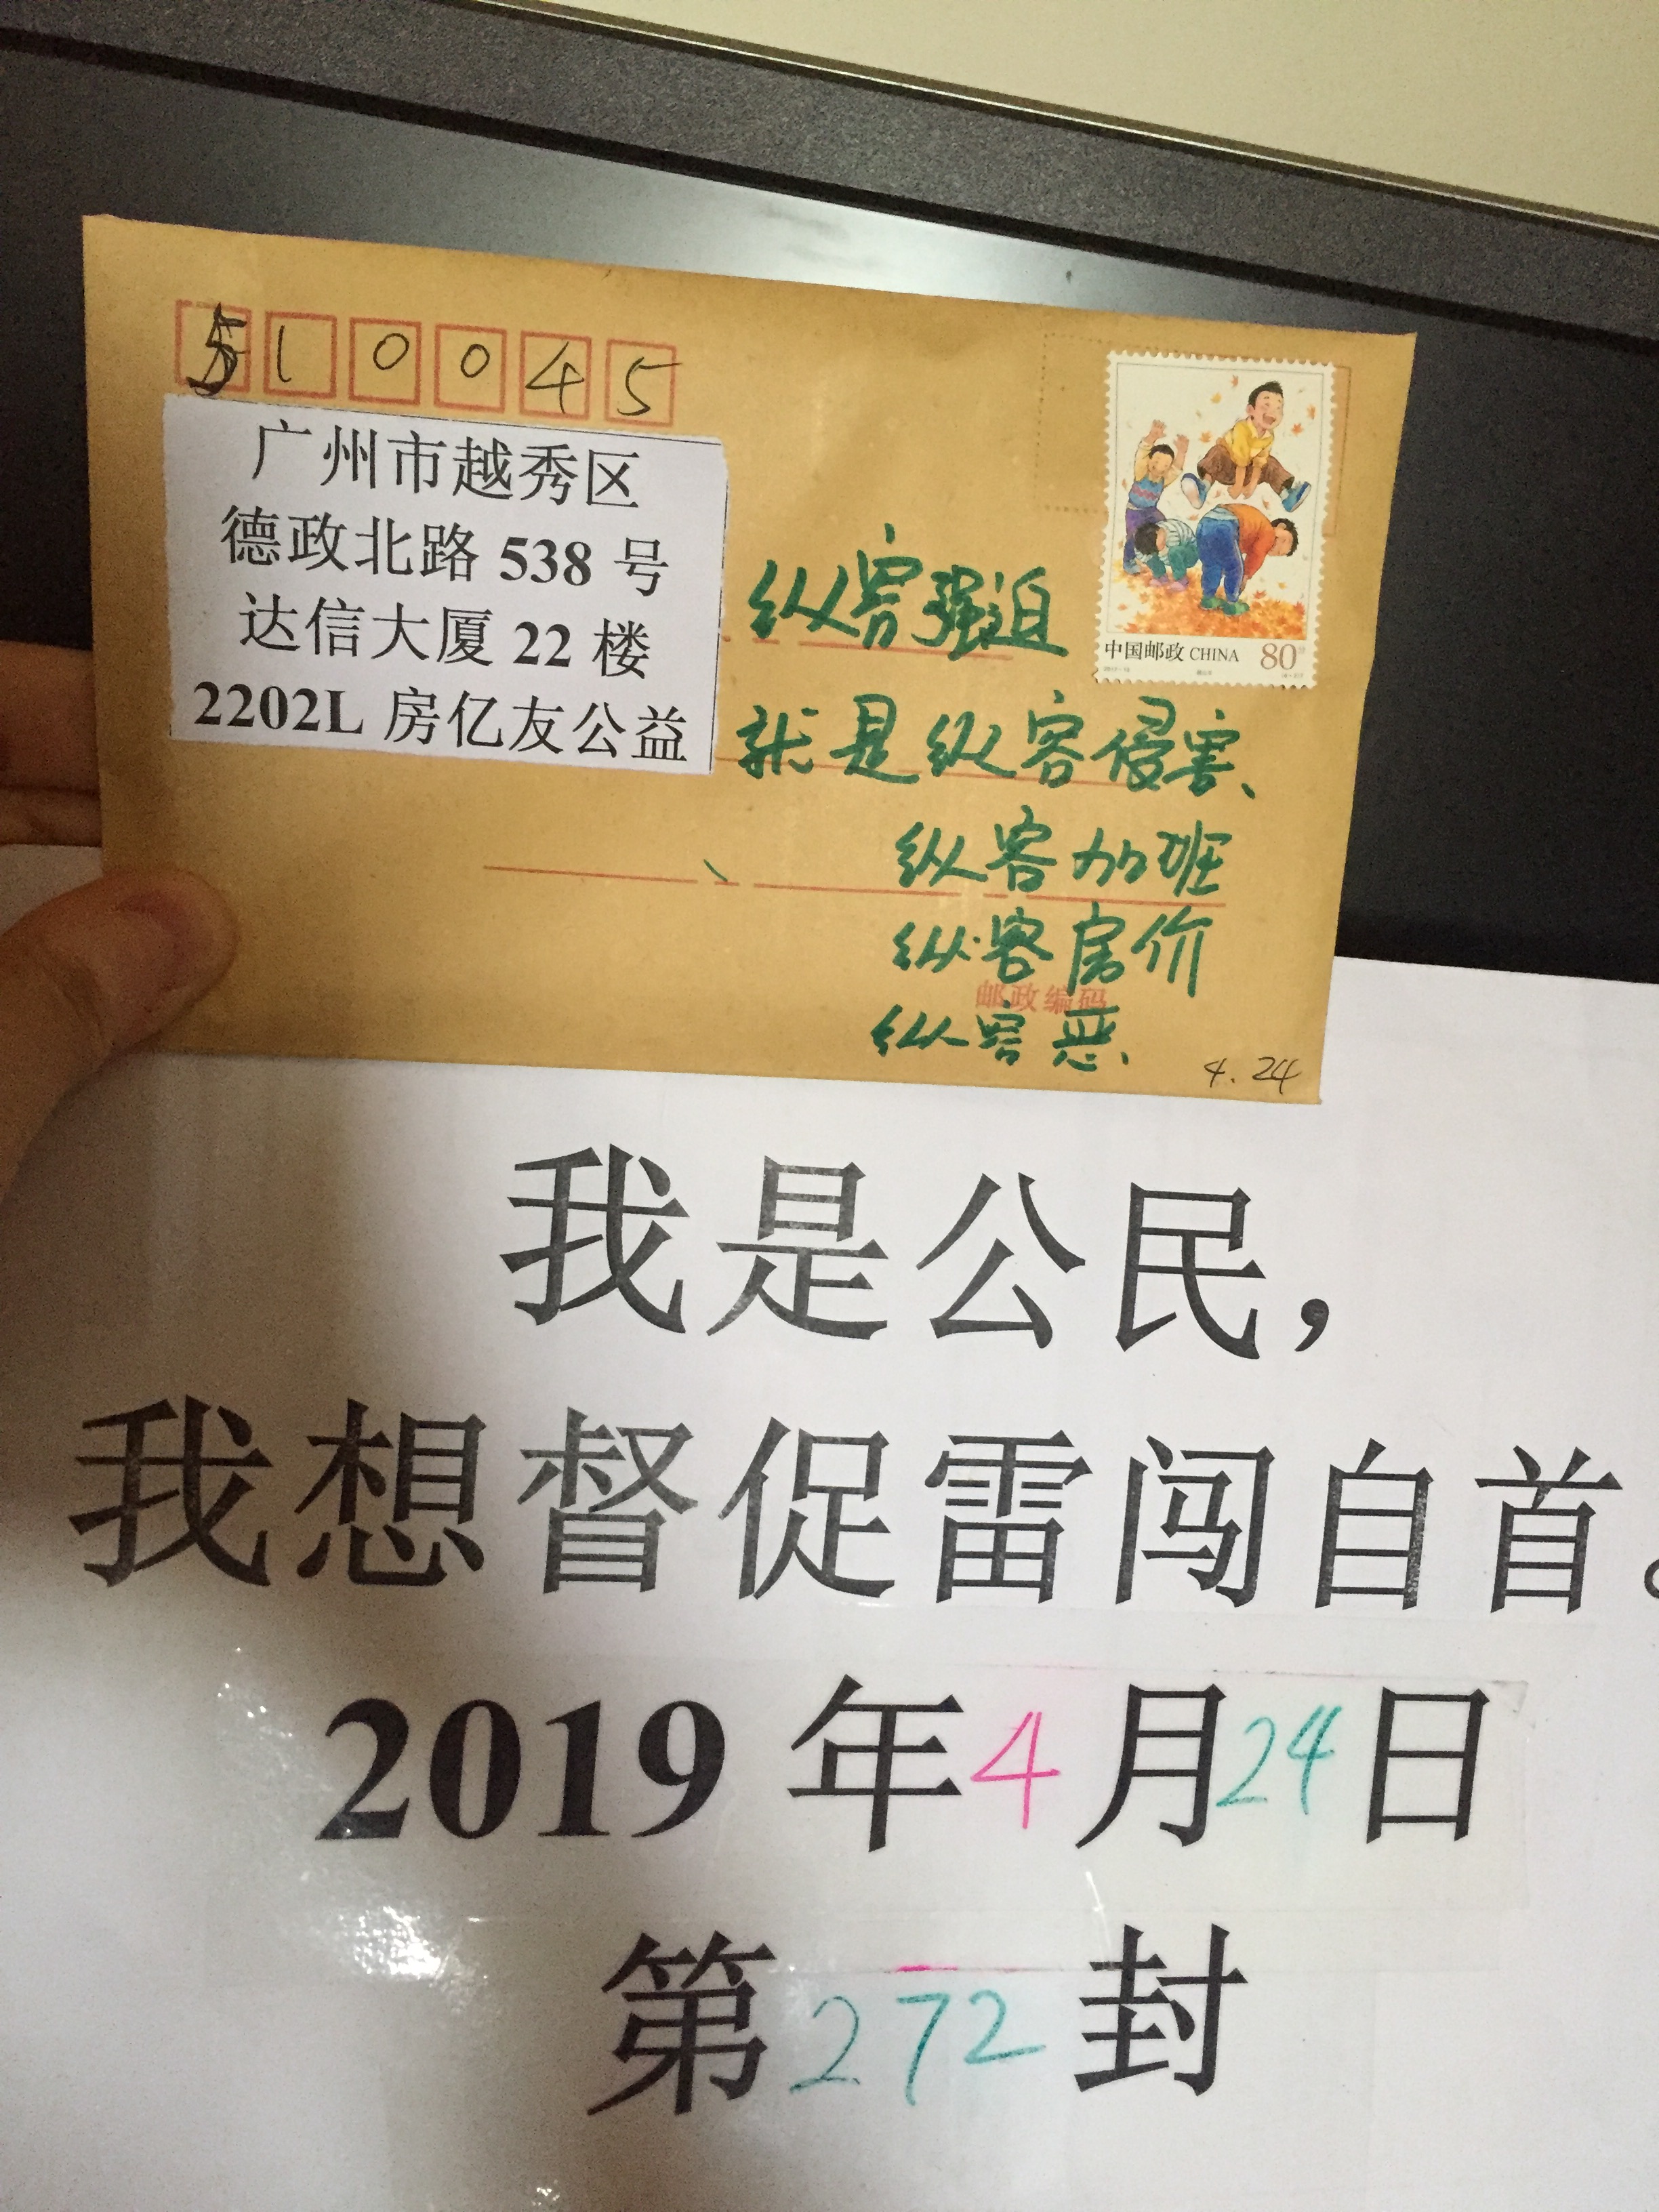 510045
广州市越秀区
德政北路 538 号
达信大厦 22 楼
2202L 房亿友公益
中国邮政 CHINA 80分
纵容强迫
就是纵容侵害、
纵容加班
纵容房价
邮政编码
纵容恶、
4.24
我是公民，
我想督促雷闯自首。
2019 年 4 月 24 日
第 272 封